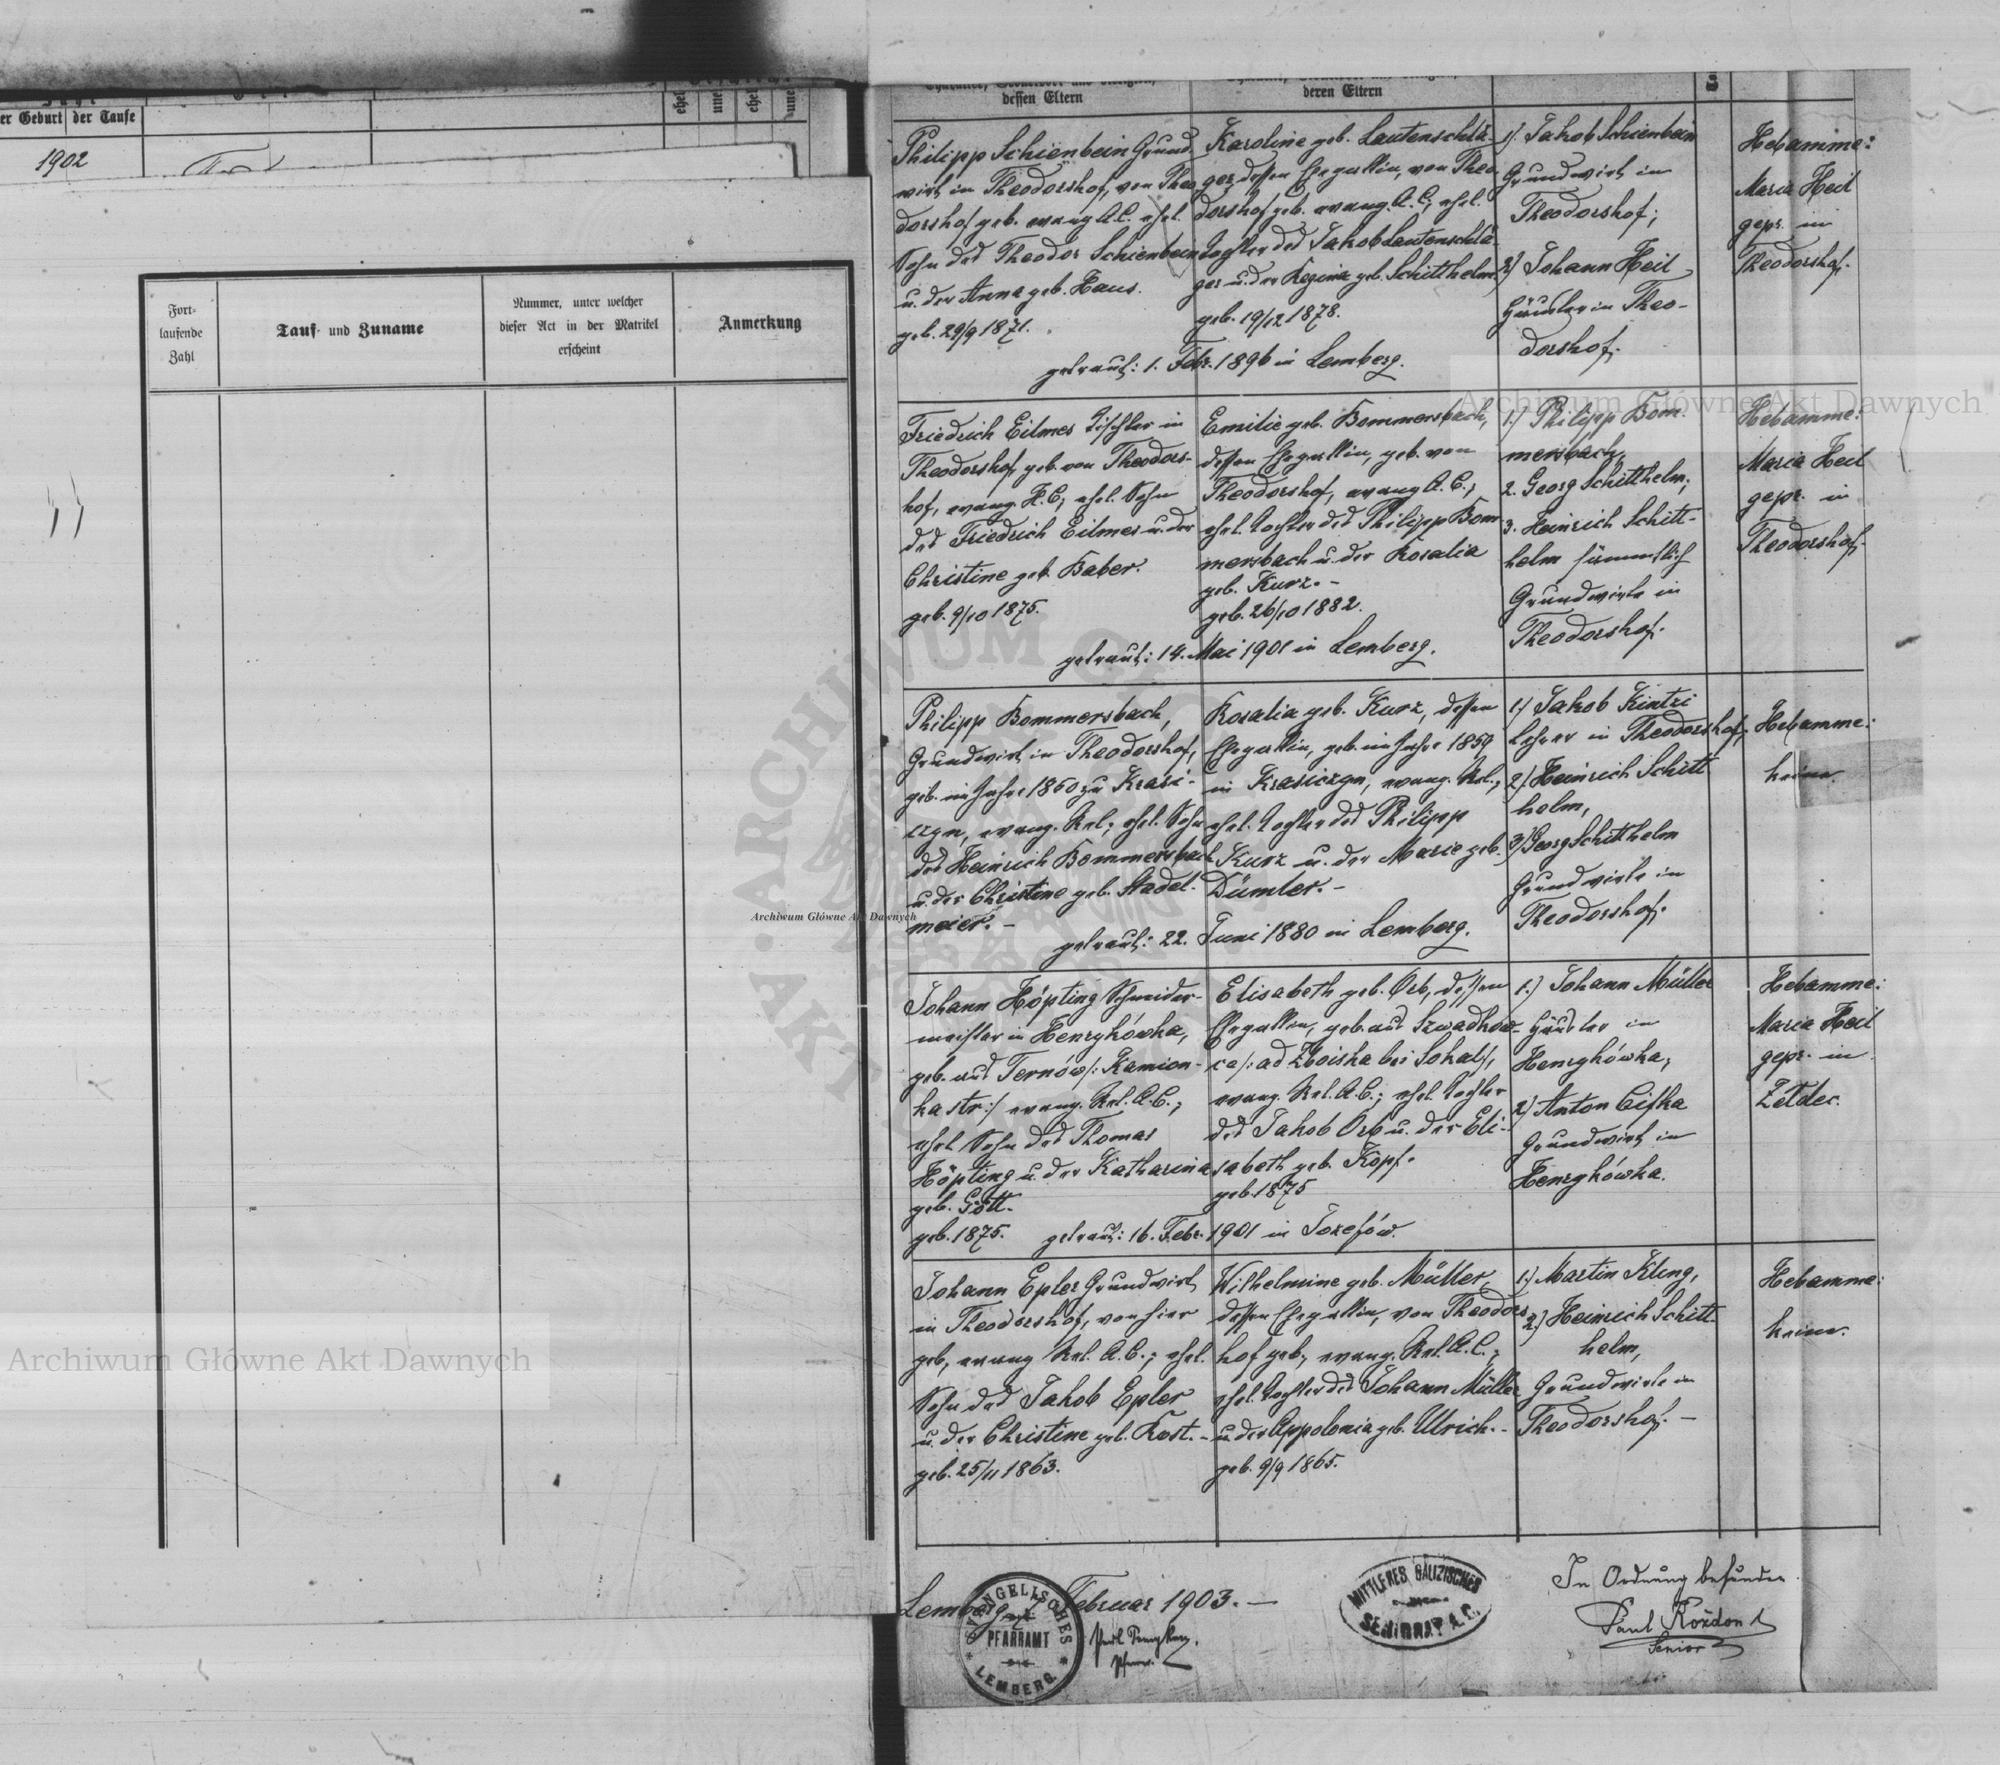 der Geburt
der Taufe
1902
Fort-
laufende
Zahl
Tauf- und Zuname
Nummer, unter welcher
dieser Act in der Matrikel
erscheint
Anmerkung
dessen Eltern
deren Eltern
Philipp Schienbein Grund
wirt in Theodorshof, von Theo
dorshof geb. evang. A.C. ehel.
Sohn des Theodor Schienbein
u. der Anna geb. Haus.
geb. 29/9 1871.
Karoline geb. Lautenschlä-
ger, dessen Ehegattin, von Theo
dorshof geb. evang. A.C., ehel.
Tochter des Jakob Lautenschlä-
ger u. der Regina geb. Schitthelm
geb. 19/12 1878.
getraut: 1. Febr. 1896 in Lemberg.
1) Jakob Schienbein
Grundwirt in
Theodorshof;
2) Johann Heil
Häusler in Theo-
dorshof.
Hebamme:
Maria Heil
gepr. in
Theodorshof.
Friedrich Eilmes Tischler in
Theodorshof, geb. von Theodors-
hof, evang. H.C., ehel. Sohn
des Friedrich Eilmes u. der
Christine geb. Baber.
geb. 9/10 1875.
Emilie geb. Bommersbach,
dessen Ehegattin, geb. von
Theodorshof, evang. A.C.;
ehel. Tochter des Philipp Bom
mersbach u. der Rosalia
geb. Kurz. -
geb. 26/10 1882.
getraut: 14. Mai 1901 in Lemberg.
1.) Philipp Bom-
mersbach,
2. Georg Schitthelm,
3. Heinrich Schitt-
helm sämmtlich
Grundwirte in
Theodorshof.
Hebamme:
Maria Heil
gepr. in
Theodorshof.
Philipp Bommersbach,
Grundwirt in Theodorshof,
geb. im Jahre 1860 zu Krasi-
czyn, evang. Rel., ehel. Sohn
des Heinrich Bommersbach
u. der Christine geb. Stadel-
meier. -
Rosalia geb. Kurz, dessen
Ehegattin, geb. im Jahre 1859
in Krasiczyn, evang. Rel.;
ehel. Tochter des Philipp
Kurz u. der Marie geb.
Dümler. -
getraut: 22. Juni 1880 in Lemberg.
1.) Jakob Kintzi
Lehrer in Theodorshof;
2.) Heinrich Schitt
helm,
3) Georg Schitthelm
Grundwirte in
Theodorshof.
Hebamme:
keine.
Johann Höpting Schneider-
meister in Henrykówka,
geb. aus Ternów /: Kamion-
ka str :/ evang. Rel. A.C.;
ehel Sohn des Thomas
Höpting u. der Katharina
geb. Gött.
geb. 1875.
Elisabeth geb. Orb, dessen
Ehegattin, geb. aus
ad Zboiska bei Sokal,
evang. Rel. A.C.; ehel. Tochter
des Jakob Orb u. der Eli-
sabeth geb. Kopf.
geb. 1875
getraut: 16. Febr. 1901 in Jozefów.
1.) Johann Müller
Häusler in
Henrykówka;
2) Anton Cißka
Grundwirt in
Henrykówka.
Hebamme:
Maria Heil
gepr. in
Zeldec.
Johann Epler Grundwirt
in Theodorshof, von hier
geb, evang Rel. A.C.; ehel.
Sohn des Jakob Epler
u. der Christine geb. Kost. -
geb. 25/11 1863.
Wilhelmine geb. Müller,
dessen Ehegattin, von Theodors
hof geb., evang. Rel. A.C.;
ehel. Tochter des Johann Müller
u. der Appolonia geb. Ulrich. -
geb. 9/9 1865.
1.) Martin Kling,
2.) Heinrich Schitt-
helm,
Grundwirte in
Theodorshof. -
Hebamme:
keine.
Lemberg Februar 1903. -
EVANGELISCHES
PFARRAMT
LEMBERG
MITTLERES GALIZISCHES
SENIORAT A.C.
In Ordnung befunden
Paul Rozdon
Senior
Archiwum Główne Akt Dawnych
Archiwum Główne Akt Dawnych
Archiwum Główne Akt Dawnych